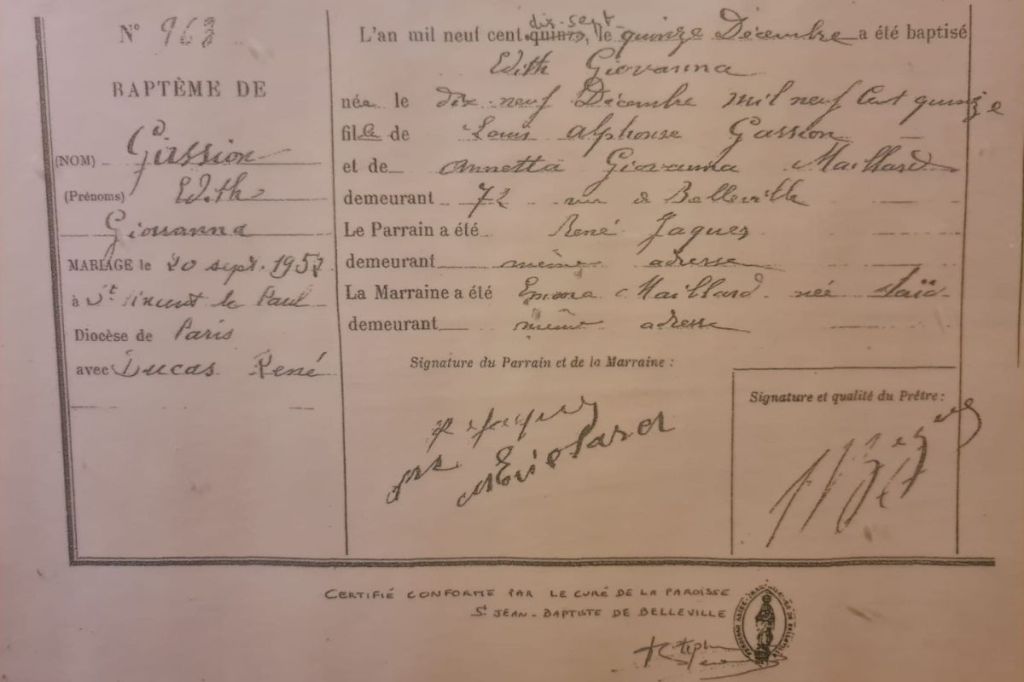 N° 963
BAPTÈME DE
(NOM) Gassion
(Prénoms) Edith
Giovanna
MARIAGE le 20 sept. 1952
à St Vincent de Paul
Diocèse de Paris
avec Ducas René
dix-sept
L'an mil neuf cent quinze, le quinze Décembre a été baptisé
Edith Giovanna
née le dix neuf Décembre mil neuf Cent quinze
fille de Louis Alphonse Gassion
et de Annetta Giovanna Maillard
demeurant 72 rue de Belleville
Le Parrain a été René Jaques
demeurant même adresse
La Marraine a été Emma Maillard née Saïd
demeurant même adresse
Signature du Parrain et de la Marraine :
Signature et qualité du Prêtre :
CERTIFIÉ CONFORME PAR LE CURÉ DE LA PAROISSE
St JEAN-BAPTISTE DE BELLEVILLE